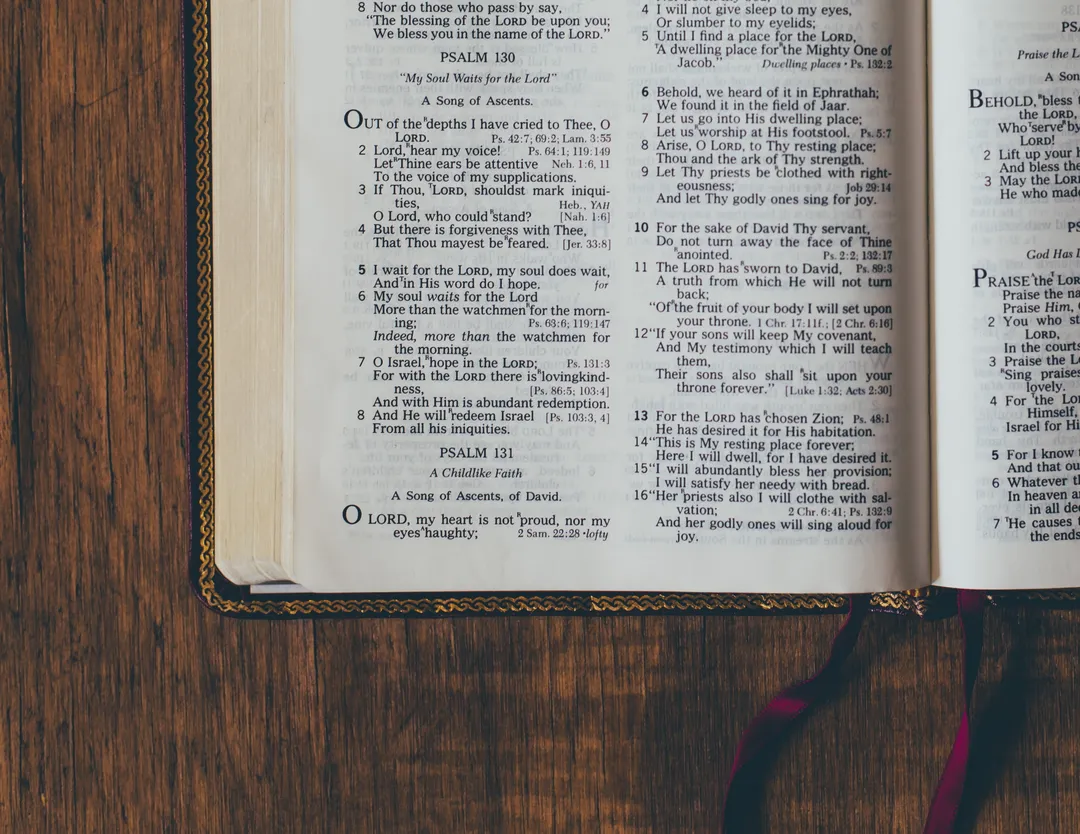 8 Nor do those who pass by say,
"The blessing of the LORD be upon you;
We bless you in the name of the LORD."
PSALM 130
"My Soul Waits for the Lord"
A Song of Ascents.
OUT of the ᴿdepths I have cried to Thee, O
LORD. Ps. 42:7; 69:2; Lam. 3:55
2 Lord, ᴿhear my voice! Ps. 64:1; 119:149
Let ᴿThine ears be attentive Neh. 1:6, 11
To the voice of my supplications.
3 If Thou, ᵀLORD, shouldst mark iniqui-
ties, Heb., YAH
O Lord, who could ᴿstand? [Nah. 1:6]
4 But there is forgiveness with Thee,
That Thou mayest be ᴿfeared. [Jer. 33:8]
5 I wait for the LORD, my soul does wait,
And ᵀin His word do I hope. for
6 My soul waits for the Lord
More than the watchmen ᴿfor the morn-
ing; Ps. 63:6; 119:147
Indeed, more than the watchmen for
the morning.
7 O Israel, ᴿhope in the LORD; Ps. 131:3
For with the LORD there is ᴿlovingkind-
ness, [Ps. 86:5; 103:4]
And with Him is abundant redemption.
8 And He will ᴿredeem Israel [Ps. 103:3, 4]
From all his iniquities.
PSALM 131
A Childlike Faith
A Song of Ascents, of David.
O LORD, my heart is not ᴿproud, nor my
eyes ᴬhaughty; 2 Sam. 22:28 · lofty
4 I will not give sleep to my eyes,
Or slumber to my eyelids;
5 Until I find a place for the LORD,
ᵀA dwelling place for ᴿthe Mighty One of
Jacob." Dwelling places · Ps. 132:2
6 Behold, we heard of it in Ephrathah;
We found it in the field of Jaar.
7 Let us go into His dwelling place;
Let us ᴿworship at His footstool. Ps. 5:7
8 Arise, O LORD, to Thy resting place;
Thou and the ark of Thy strength.
9 Let Thy priests be ᴿclothed with right-
eousness; Job 29:14
And let Thy godly ones sing for joy.
10 For the sake of David Thy servant,
Do not turn away the face of Thine
ᴿanointed. Ps. 2:2; 132:17
11 The LORD has ᴿsworn to David, Ps. 89:3
A truth from which He will not turn
back;
"Of ᴿthe fruit of your body I will set upon
your throne. 1 Chr. 17:11f.; [2 Chr. 6:16]
12 "If your sons will keep My covenant,
And My testimony which I will teach
them,
Their sons also shall ᴿsit upon your
throne forever." [Luke 1:32; Acts 2:30]
13 For the LORD has ᴿchosen Zion; Ps. 48:1
He has desired it for His habitation.
14 "This is My resting place forever;
Here I will dwell, for I have desired it.
15 "I will abundantly bless her provision;
I will satisfy her needy with bread.
16 "Her ᴿpriests also I will clothe with sal-
vation; 2 Chr. 6:41; Ps. 132:9
And her godly ones will sing aloud for
joy.
Praise the L
A Son
BEHOLD, ᴿbless
the LORD,
Who ᵀserve ᴿby
LORD!
2 Lift up your
And bless the
3 May the LORD
He who made
God Has
PRAISE ᴬthe LOR
Praise the na
Praise Him,
2 You who st
LORD,
In the courts
3 Praise the L
ᴿSing praises
lovely.
4 For ᵀthe Lor
Himself,
Israel for Hi
5 For I know
And that ou
6 Whatever
In heaven a
in all de
7 ᵀHe causes
the ends